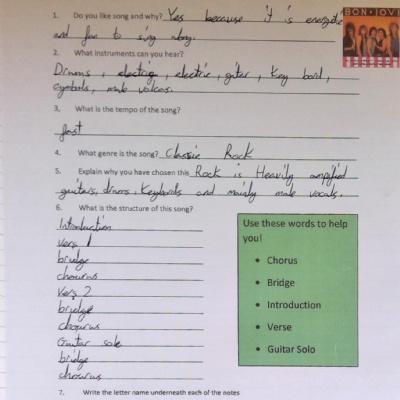 1. Do you like song and why? Yes because it is energetic
and fun to sing along.
BON JOVI
2. What instruments can you hear?
Drums, electrig, electric, guiter, Key bord,
cymbals, male voices.
3, What is the tempo of the song?
fast
4. What genre is the song? Classic Rock
5. Explain why you have chosen this Rock is Heavily amplified
guitars, drums, Keyboards and mainly male vocals.
6. What is the structure of this song?
Introduction
Vers 1
bridge
chourus
Vers 2
bridge
chourus
Guitar solo
bridge
chourus
Use these words to help
you!
• Chorus
• Bridge
• Introduction
• Verse
• Guitar Solo
7. Write the letter name underneath each of the notes